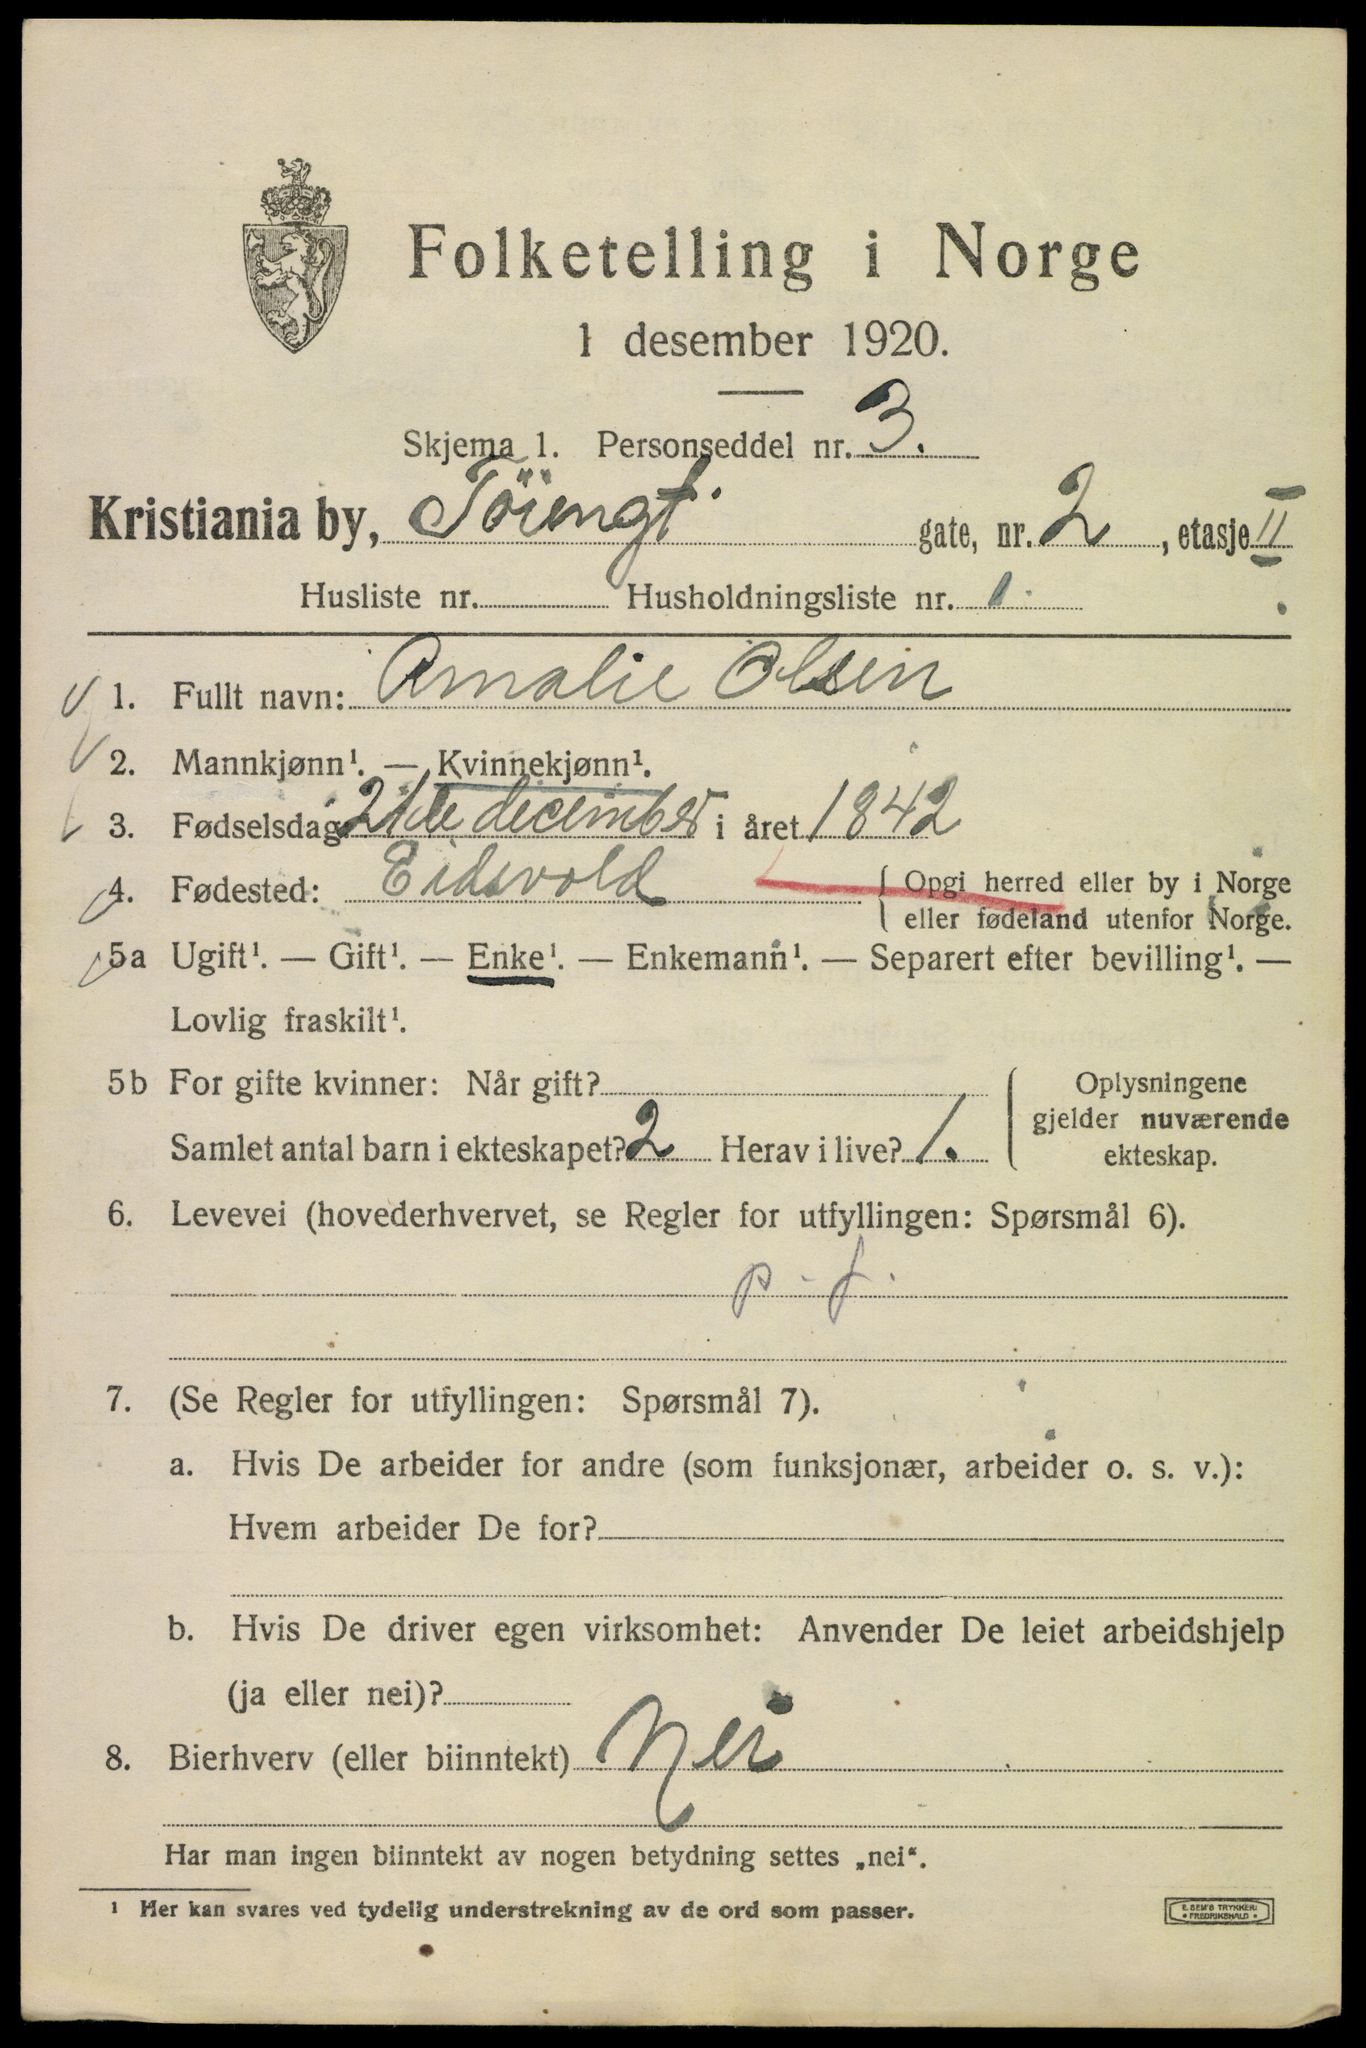 Folketelling i Norge
1 desember 1920.
Skjema 1. Personseddel nr. 3.
Kristiania by, Töiengt. gate, nr. 2, etasje II
Husliste nr. Husholdningsliste nr. 1.
1. Fullt navn: Amalie Olsen
2. Mannkjønn¹. — Kvinnekjønn¹.
3. Fødselsdag 21de december i året 1842
4. Fødested: Eidsvold { Opgi herred eller by i Norge
eller fødeland utenfor Norge.
5a Ugift¹. — Gift¹. — Enke¹. — Enkemann¹. — Separert efter bevilling¹. —
Lovlig fraskilt¹.
5b For gifte kvinner: Når gift?
Samlet antal barn i ekteskapet? 2 Herav i live? 1.
Oplysningene
gjelder nuværende
ekteskap.
6. Levevei (hovederhvervet, se Regler for utfyllingen: Spørsmål 6).
p. f.
7. (Se Regler for utfyllingen: Spørsmål 7).
a. Hvis De arbeider for andre (som funksjonær, arbeider o. s. v.):
Hvem arbeider De for?
b. Hvis De driver egen virksomhet: Anvender De leiet arbeidshjelp
(ja eller nei)?
8. Bierhverv (eller biinntekt) Nei
Har man ingen biinntekt av nogen betydning settes „nei“.
¹ Her kan svares ved tydelig understrekning av de ord som passer.
E. SEM'S TRYKKERI
• FREDRIKSHALD •